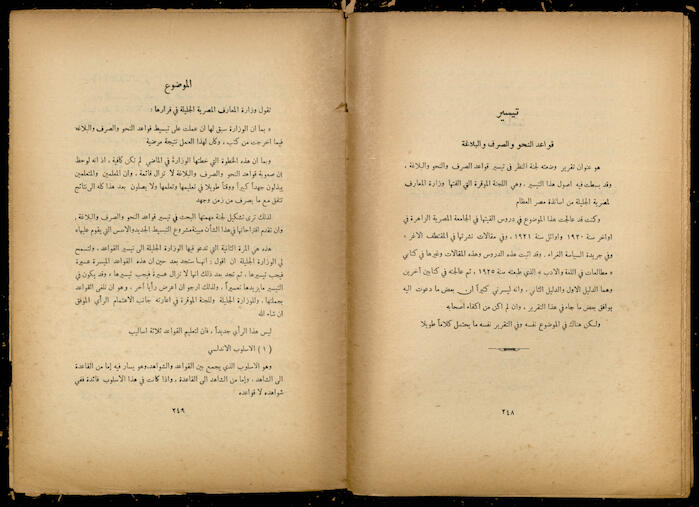 تيسير
قواعد النحو والصرف والبلاغة
هو عنوان تقرير وضعته لجنة النظر في تيسير قواعد الصرف والنحو والبلاغة .
وقد بسطت فيه اصول هذا التيسير . وهي اللجنة الموقرة التي الفتها وزارة المعارف
المصرية الجليلة من اساتذة مصر العظام
وكنت قد عالجت هذا الموضوع في دروس القيتها في الجامعة المصرية الزاهرة في
اواخر سنة ١٩٢٠ واوائل سنة ١٩٢١ . وفي مقالات نشرتها في المقتطف الاغر .
وفي جريدة السياسة الغراء . وقد اثبت هذه الدروس وهذه المقالات وغيرها في كتابي
« مطالعات في اللغة والادب » الذي طبعته سنة ١٩٢٥ . ثم عالجته في كتابين آخرين
وهما الدليل الاول والدليل الثاني . وانه ليسرني كثيراً ان بعض ما دعوت اليه
يوافق بعض ما جاء في هذا التقرير . وان لم اكن من اكفاء أصحابه
ولكن هناك في الموضوع نفسه وفي التقرير نفسه ما يحتمل كلاماً طويلا
٢٤٨
الموضوع
تقول وزارة المعارف المصرية الجليلة في قرارها :
« بما ان الوزارة سبق لها ان عملت على تبسيط قواعد النحو والصرف والبلاغة
فيما اخرجت من كتب . وكان لهذا العمل نتيجة مرضية
وبما ان هذه الخطوة التي خطتها الوزارة في الماضي لم تكن كافية . اذ انه لوحظ
ان صعوبة قواعد النحو والصرف والبلاغة لا تزال قائمة . وان المعلمين والمتعلمين
يبذلون جهداً كبيراً ووقتاً طويلا في تعليمها وتعلمها ولا يصلون بعد هذا كله الى نتائج
تتفق مع ما يصرف من زمن وجهد
لذلك ترى تشكيل لجنة مهمتها البحث في تيسير قواعد النحو والصرف والبلاغة .
وان تقدم اقتراحاتها في هذا الشأن مبينة مشروع التبسيط الجديد والاسس التي يقوم عليها »
هذه هي المرة الثانية التي تدعو فيها الوزارة الجليلة الى تيسير القواعد . ولتسمح
لي الوزارة الجليلة ان اقول : انها ستجد بعد حين ان هذه القواعد الميسرة عسيرة
فيجب تيسيرها . ثم تجد بعد ذلك انها لا تزال عسيرة فيجب تيسيرها . وقد يكون في
التيسير ما يزيدها تعسيراً . ولذلك ارجو ان اعرض رأياً آخر . وهو ان تلغى القواعد
بجملتها . وللوزارة الجليلة وللجنة الموقرة في اعارته جانب الاهتمام الرأي الموفق
ان شاء الله
ليس هذا الرأي جديداً . فان لتعليم القواعد ثلاثة اساليب
( ١ ) الاسلوب الاندلسي
وهو الاسلوب الذي يجمع بين القواعد والشواهد . وهو يسار فيه إما من القاعدة
الى الشاهد . وإما من الشاهد الى القاعدة . واذا كانت في هذا الاسلوب فائدة ففي
شواهده لا قواعده
٢٤٩